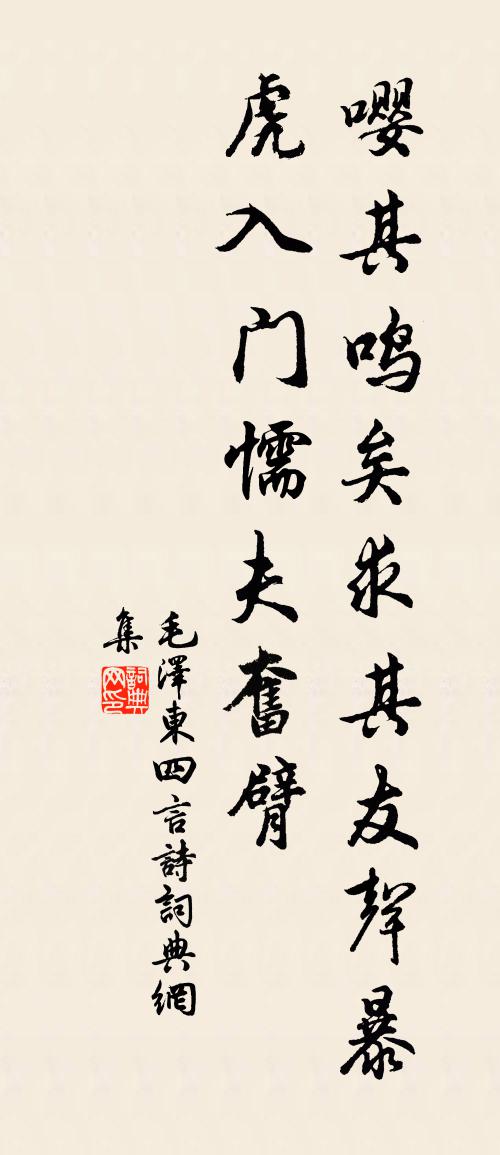 嘤其鸣矣求其友聲暴
虎入门懦夫奮臂
毛澤東四言詩詞典網
集
詞典
网印